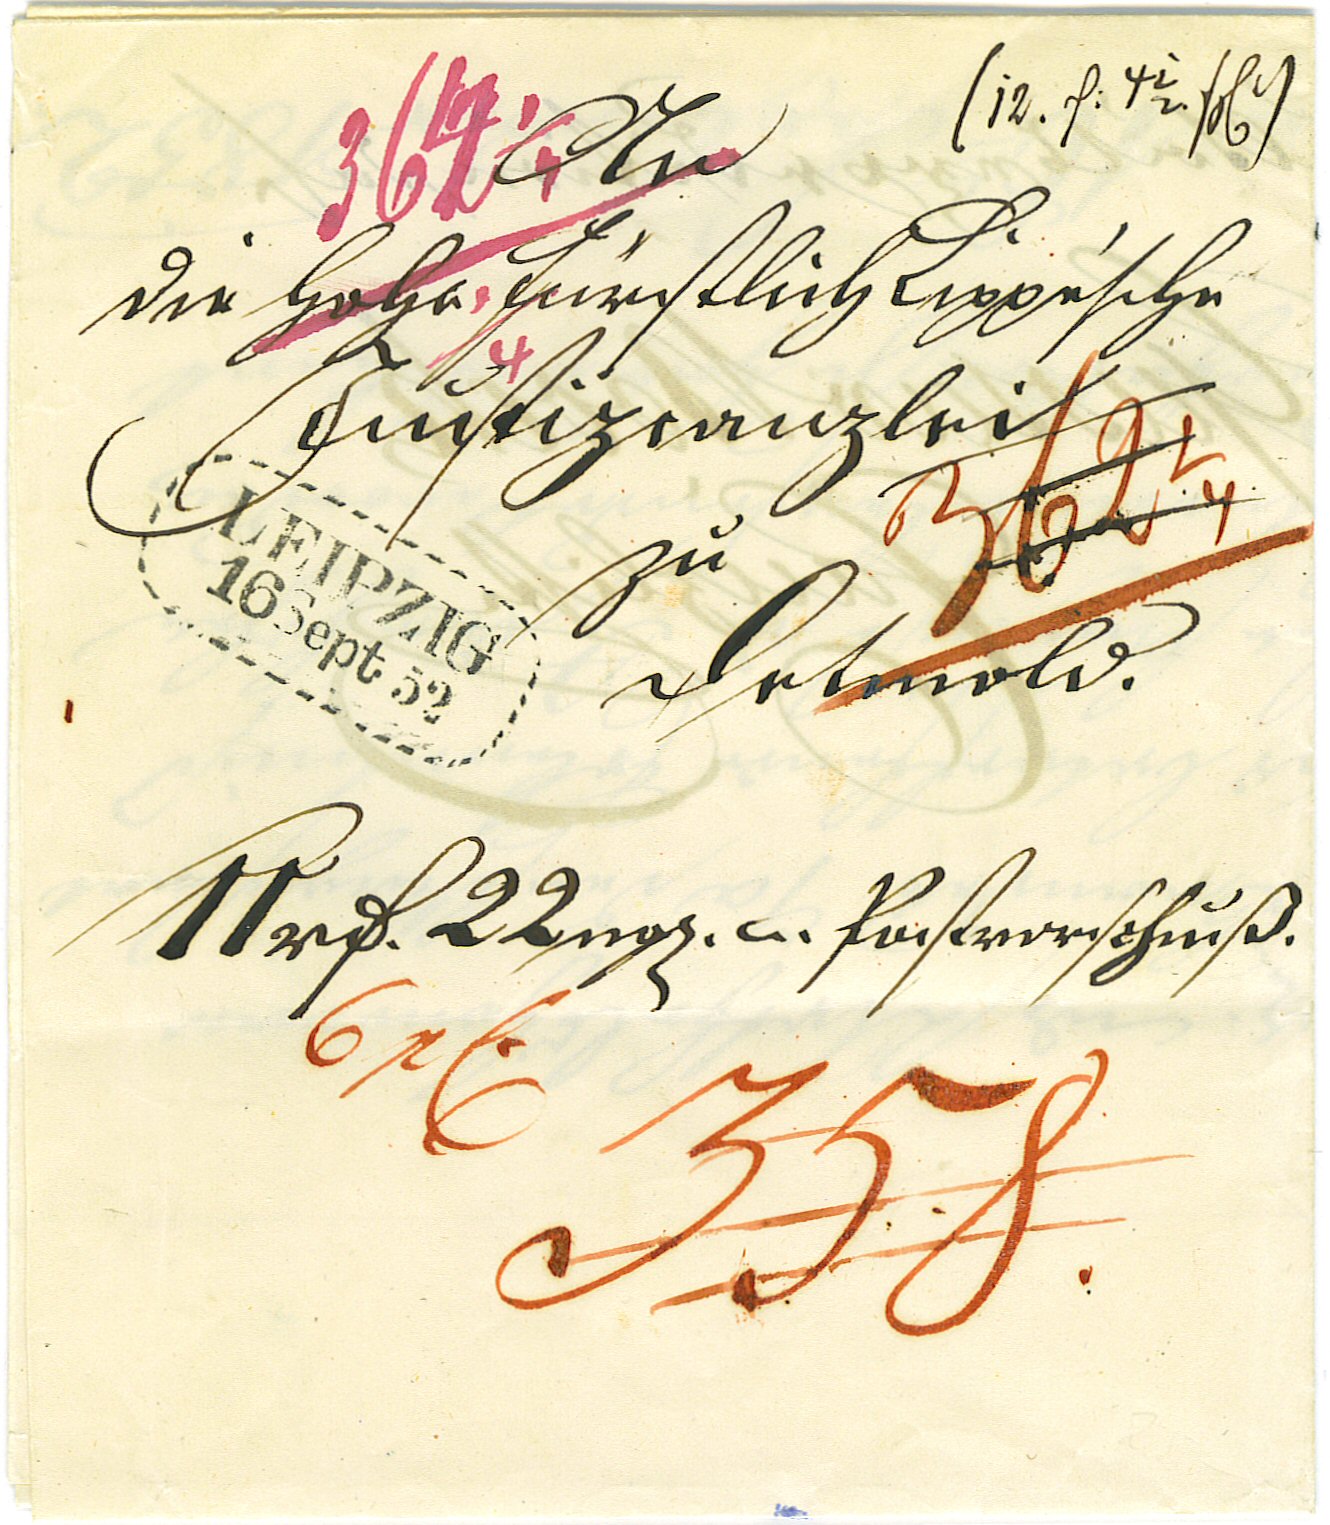 An
die Hohe Fürstlich Lippe'sche
Justizcanzlei
zu
Detmold.
LEIPZIG
16 Sept. 52
11 rℓ. 22 ngr. d. Postvorschuß.
6
358.